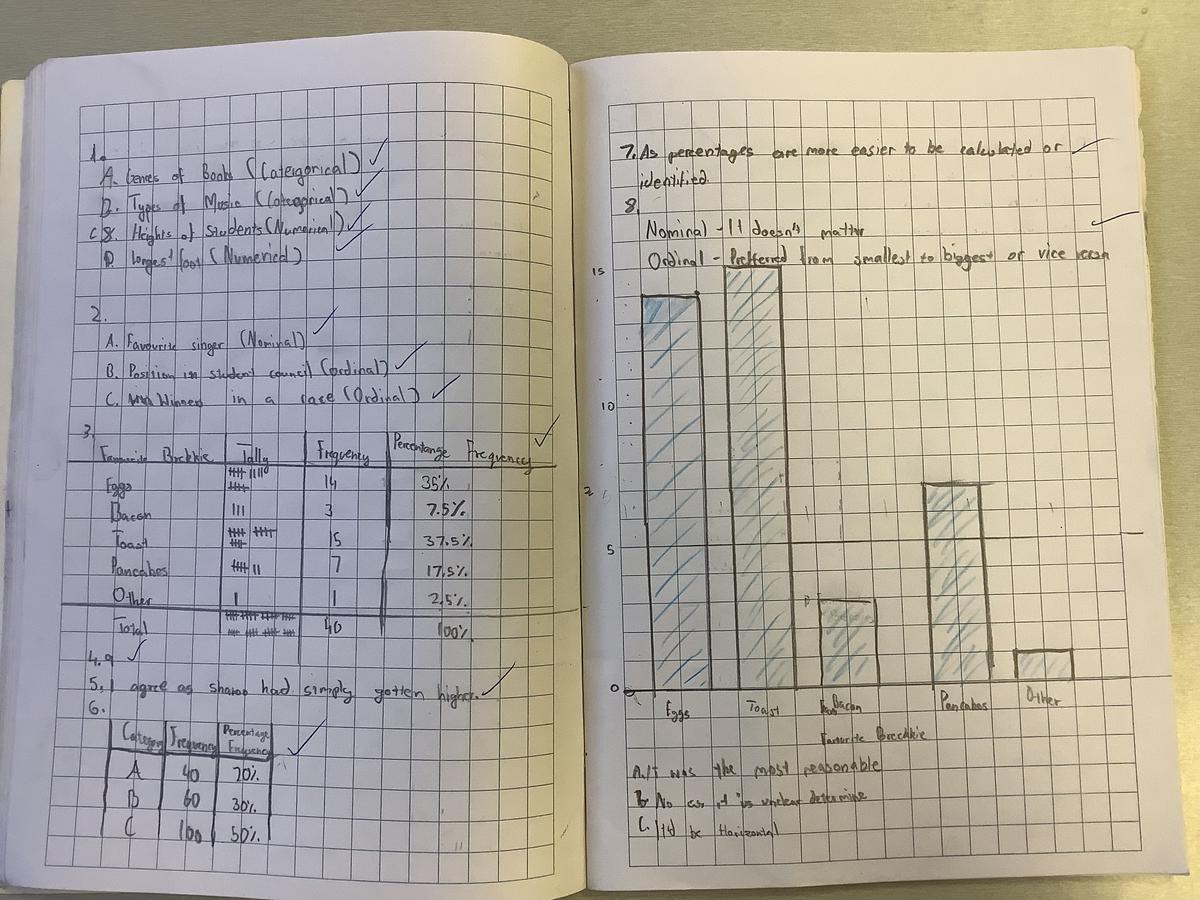 1.
A. Genres of Books (Catergorical)
B. Types of Music (Categorical)
C. Heights of Students (Numerical)
D. Longest foot (Numerical)
2.
A. Favourite singer (Nominal)
B. Position in student council (ordinal)
C. Winners in a race (Ordinal)
3.
Favourite Breckkie Tally Frequency Percentange Frequency
Eggs 14 35%
Bacon III 3 7.5%
Toast 15 37.5%
Pancakes 7 17.5%
Other I 1 2.5%
Total 40 100%
4. 9
5. I agree as had simply gotten higher.
6.
Category Frequency Percentage Frequency
A 40 20%
B 60 30%
C 100 50%
7. As percentages are more easier to be calculated or
identified.
8.
Nominal - It doesn't matter
Ordinal - Preferred from smallest to biggest or vice versa
15
10
5
0
Eggs Toast Bacon Pancakes Other
Favourite Breckkie
A. It was the most reasonable
B. No as it is unclear determine
C. It'd be Horizontal